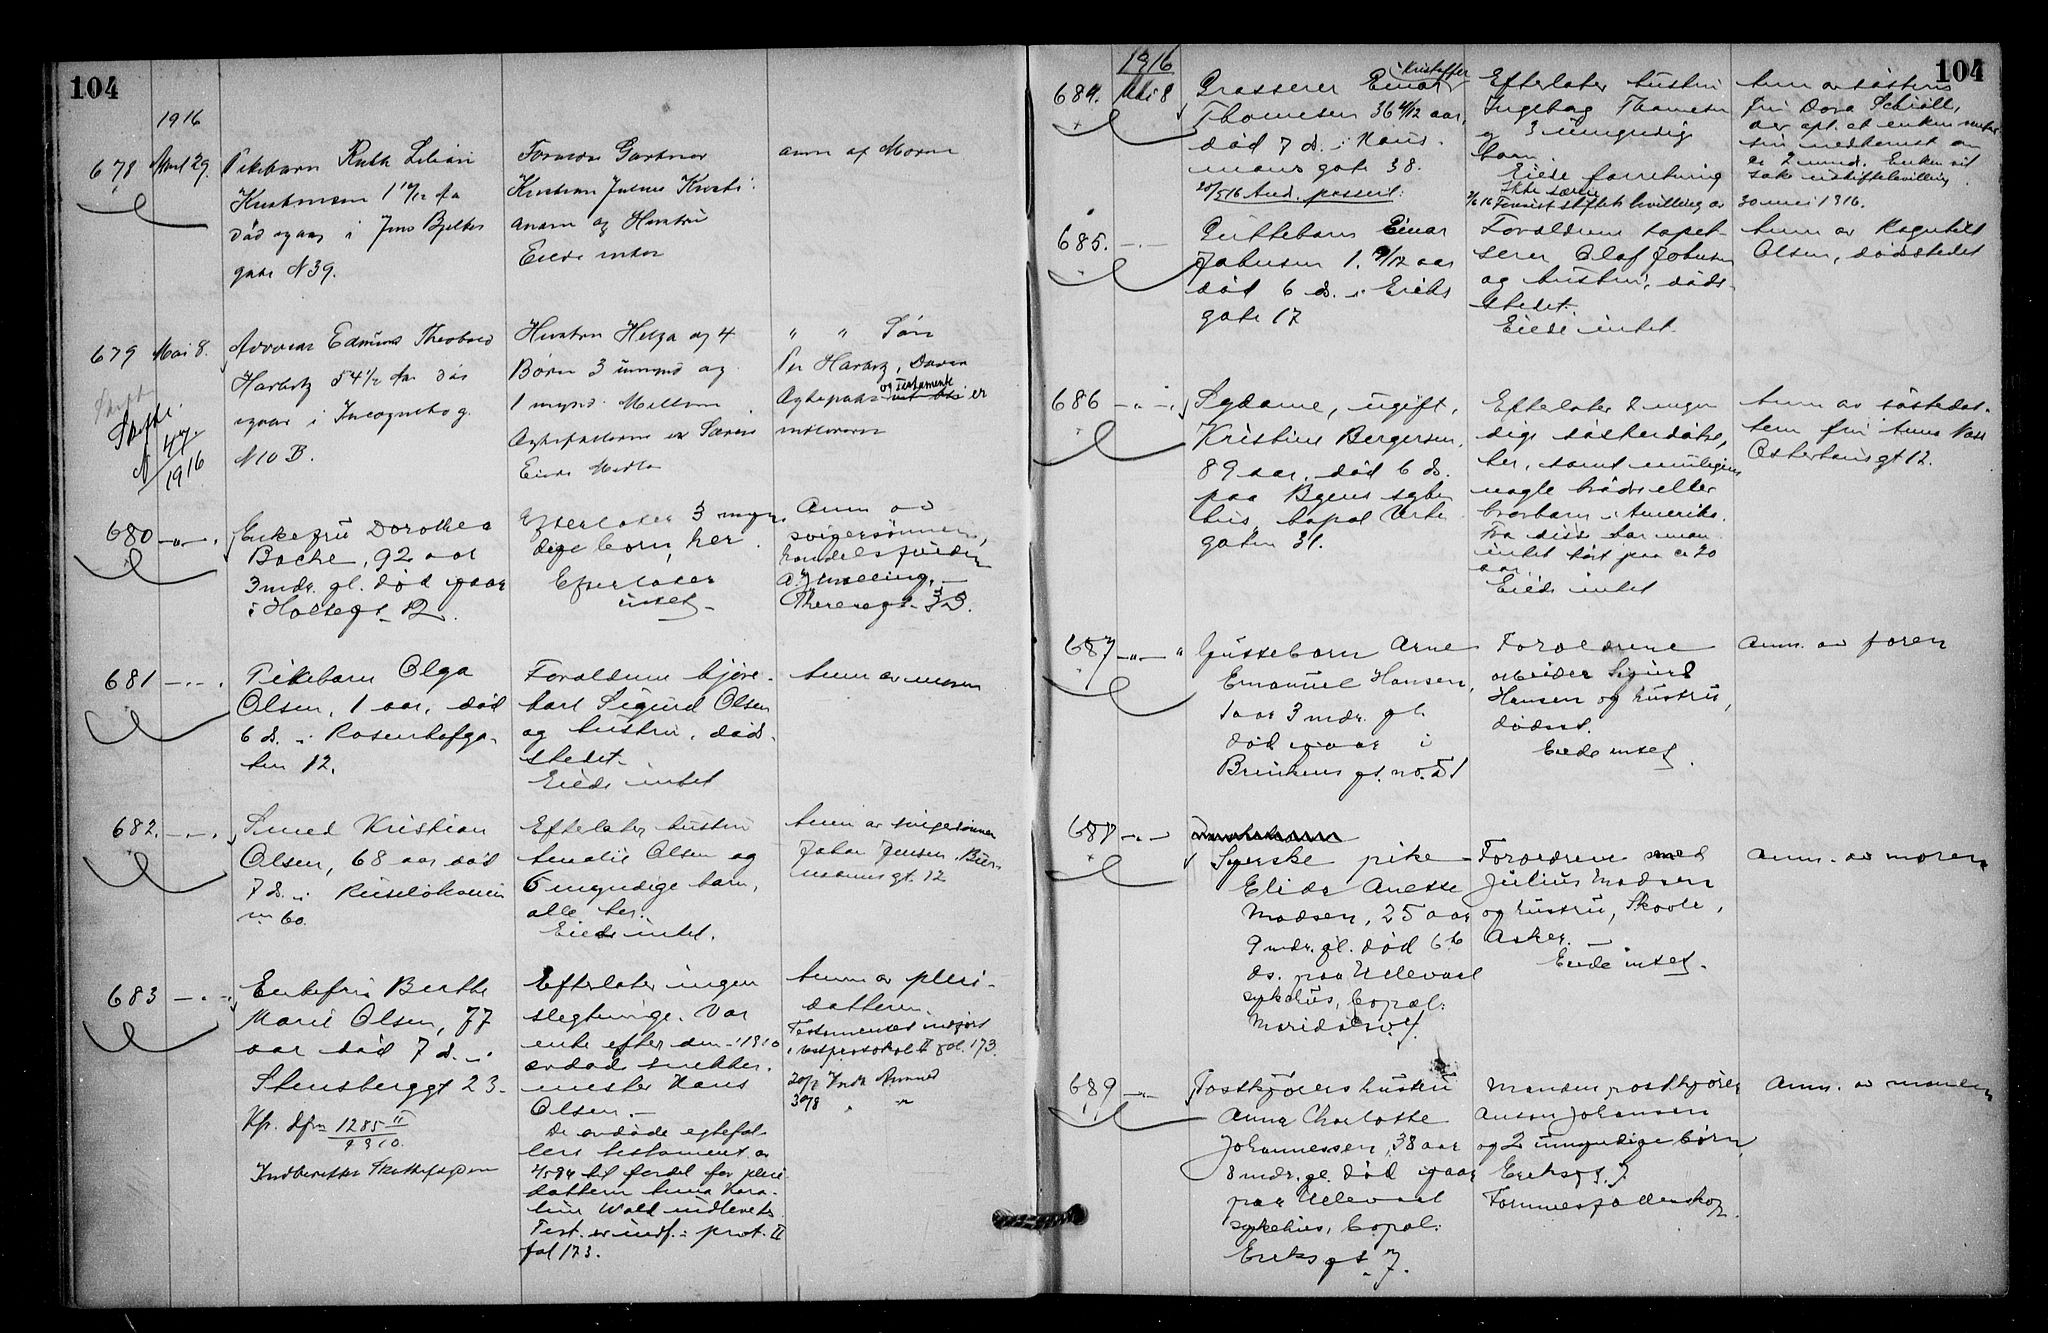 104
1916
678 April 29. Pikebarn Ruth Lilian
Kristiansen 1 10/12 Aar
død igaar i Jens Bjelkes
gade N 39.
Kristian Julius Kristi-
ansen og Hustru
Eiede intet
anm af Moren
679 Mai 8. Advokat Edmund Theobald
Harbitz 54 1/2 Aar død
igaar i Incognitog.
N 10 B.
Skifte
N 47
1916
Hustru Helga og 4
Børn 3 umynd og
1 mynd. Mellem
Ægtefællerne er Særeie
Eiede Midler
" " Søn
Per Harbitz, Daren
Ægtepakt og Testamente er
indleveret
680 —"— Enkefru Dorothea
Bache, 92 aar
3 mdr. gl. død igaar
i Holtegt. 12.
Efterlater 3 myn-
dige born, her.
Efterlater
intet
Anm av
svigersønnen,
Theresegt. 39.
681 —"— Pikebarn Olga
Olsen, 1 aar, død
6 ds. i Rosenhofga-
ten 12.
Forældrene kjøre-
karl Sigurd Olsen
og hustru, døds-
stedet.
Eiede intet
Anm av moren
682. —"— Smed Kristian
Olsen, 68 aar død
7 ds. i Ruseløkveien
no 60.
Efterlater hustru
Amalie Olsen og
6 myndige barn,
alle her.
Eiede intet.
Anm av svigersønnen
Johan Jensen, Bier-
mannsgt. 12
683 —"— Enkefru Berthe
Marie Olsen, 77
aar død 7 ds. i
Stensberggt 23.
1285 II
9910.
Efterlater ingen
slegtninge. Var
enke efter den i 1910
avdøde snekker-
mester Hans
Olsen.—
De avdøde egtefol-
kers testament av
til fordel for pleie-
datteren Anna Karo-
line Wold indleveres
Test. er indf. i prot. II
fol 173.
Anm av pleie-
datteren.
Testamentet indført
i testprotokol II fol. 173.
104
1916
684. Mai 8 Grosserer Einar Kristoffer
Thomesen 36 4/12 aar,
død 7 ds. i Haus-
manns gate 38.
20/5 16 Anm. passert.
Efterlater hustru
Ingeborg Thomesen
og 3 umyndige
barn.
Eiede forretning
Ikke særeie
Anm av søsteren
frk Dora Schiøll,
30 mai 1916.
685. —"— Guttebarn Einar
Johnsen 1 9/12 aar
død 6 ds. i Eriks
gate 17
Forældrene tapet-
serer Olaf Johnsen
og hustru, døds-
stedet.
Eiede intet
Anm av Ragnhild
Olsen, dødsstedet
686 —"— Sydame, ugift,
Kristine Bergersen,
89 aar, død 6 ds.
paa Byens syke-
hus, bopæl Urte-
gaten 31.
Efterlater 2 myn-
dige søsterdøtre,
her, samt muligens
nogle brødre eller
brorbarn i Amerika.
Fra disse har man
intet hørt paa ca 20
aar.
Eiede intet
Anm av søsterdat-
teren frk Anna Næss
Osterhausgt 12.
687 —"— " Guttebarn Arne
Emanuel Hansen,
1 aar 3 mdr. gl.
død igaar i
Brinkens gt. no. 51
Forældrene
arbeider Sigurd
Hansen og hustru,
dødsst.
Eiede intet.
Anm. av faren
688 —"—
Syerske pike
Elida Anette
Madsen, 25 aar
9 mdr. gl. død 6 6
ds. paa Ullevaal
sykehus, bopæl:
Maridalsv. 4.
Forældrene smed
Julius Madsen
og hustru, Skovle,
Asker. —
Eiede intet.
Anm. av moren
689 —"— Postkjørers hustru
Anna Charlotte
Johannessen, 38 aar
8 mdr. gl. død igaar
paa Ullevaal
sykehus, bopæl:
Eriks gt. 7.
Manden postkjører
Anton Johansen
og 2 umyndige børn,
Eriksgt. 7
Formuesfællesskap.
Anm. av manden